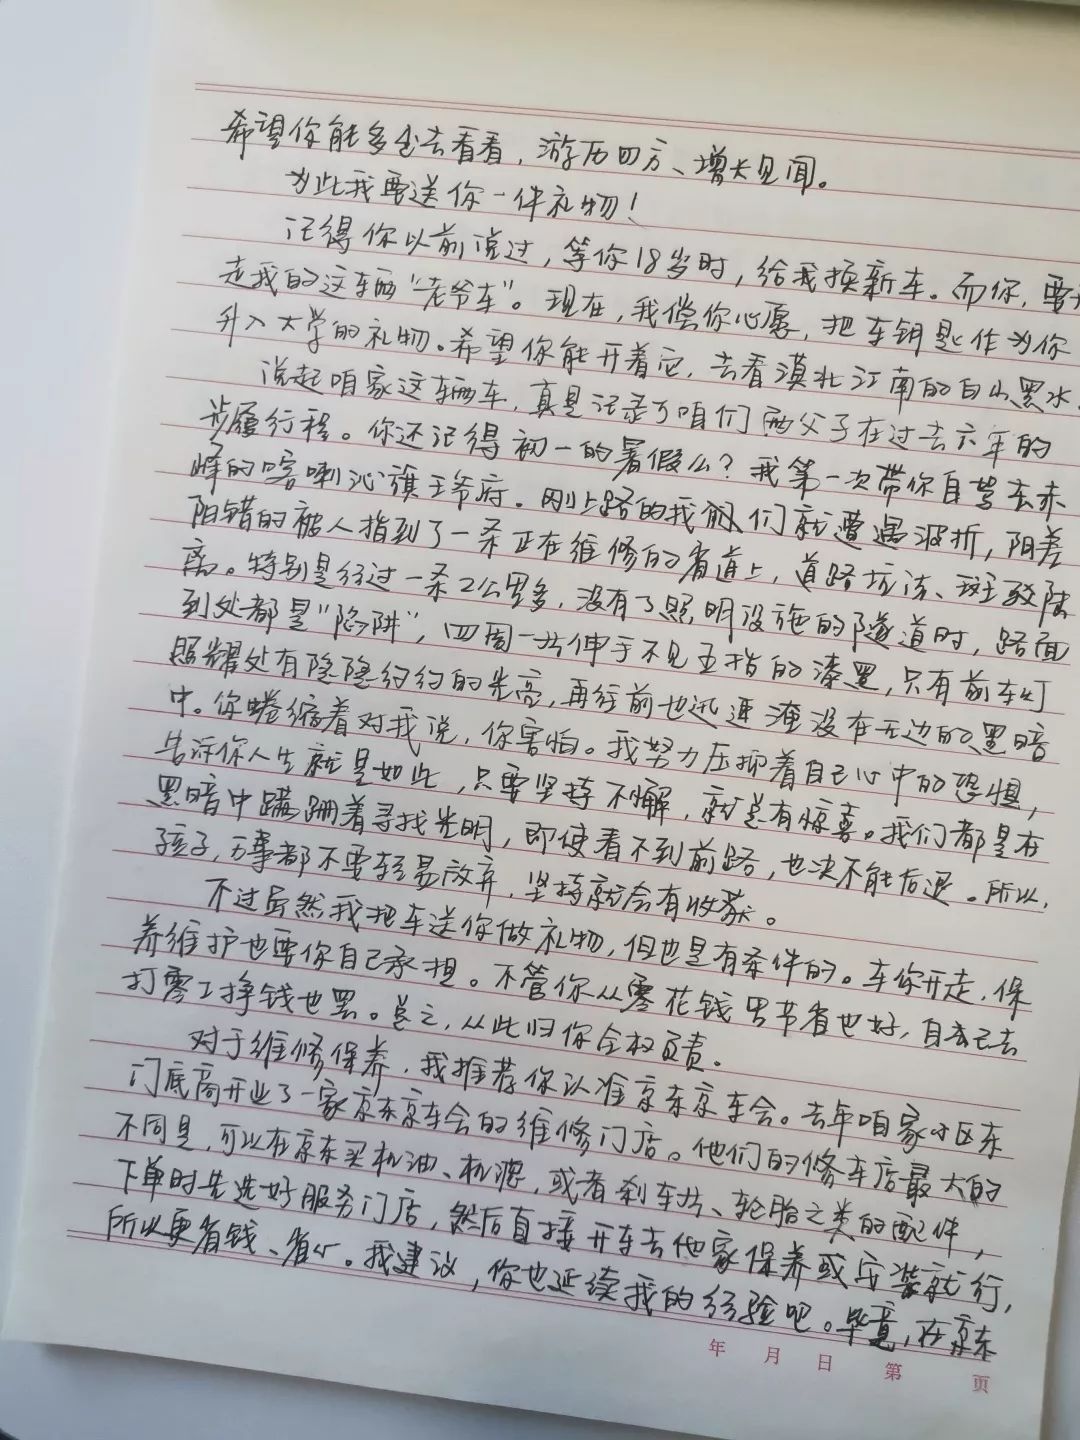 希望你能多出去看看，游历四方、增长见闻。
为此我要送你一件礼物！
记得你以前说过，等你18岁时，给我换新车。而你，要开
走我的这辆“老爷车”。现在，我偿你心愿，把车钥匙作为你
升入大学的礼物。希望你能开着它，去看漠北江南的白山黑水。
说起咱家这辆车，真是记录了咱们两父子在过去六年的
步履行程。你还记得初一的暑假么？我第一次带你自驾去赤
峰的喀喇沁旗王爷府。刚上路的我们就遭遇波折，阴差
阳错的被人指到了一条正在维修的省道上，道路坑洼、斑驳陆
离。特别是经过一条2公里多，没有了照明设施的隧道时，路面
到处都是“陷阱”，四周一片伸手不见五指的漆黑，只有前车灯
照耀处有隐隐约约的光亮，再往前也迅速淹没在无边的黑暗
中。你蜷缩着对我说，你害怕。我努力压抑着自己心中的恐惧，
告诉你人生就是如此，只要坚持不懈，就总有惊喜。我们都是在
黑暗中蹒跚着寻找光明，即使看不到前路，也决不能后退。所以，
孩子，万事都不要轻易放弃，坚持就会有收获。
不过虽然我把车送你做礼物，但也是有条件的。车你开走，保
养维护也要你自己承担。不管你从零花钱里节省也好，自己去
打零工挣钱也罢。总之，从此归你全权负责。
对于维修保养，我推荐你认准京东京车会。去年咱家小区东
门底商开业了一家京东京车会的维修门店。他们的修车店最大的
不同是，可以在京东买机油、机滤，或者刹车片、轮胎之类的配件，
下单时先选好服务门店，然后直接开车去他家保养或安装就行，
所以更省钱、省心。我建议，你也延续我的经验吧。毕竟，在京东
年 月 日 第 页